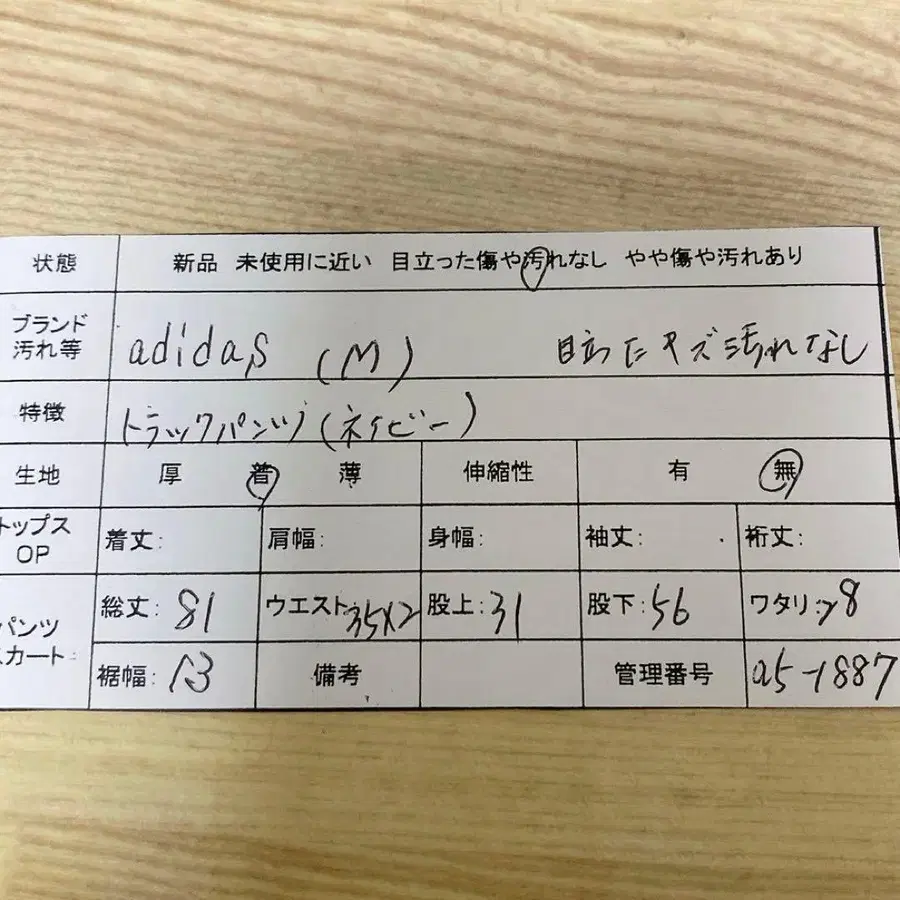 状態 新品 未使用に近い 目立った傷や汚れなし やや傷や汚れあり
ブランド
汚れ等 adidas (M) 目立ったキズ汚れなし
特徴 トラックパンツ(ネイビー)
生地 厚 普 薄 伸縮性 有 無
トップス
OP 着丈: 肩幅: 身幅: 袖丈: 裄丈:
パンツ
スカート: 総丈: 81 ウエスト: 35×2 股上: 31 股下: 56 ワタリ: 28
裾幅: 13 備考 管理番号 a5-1887